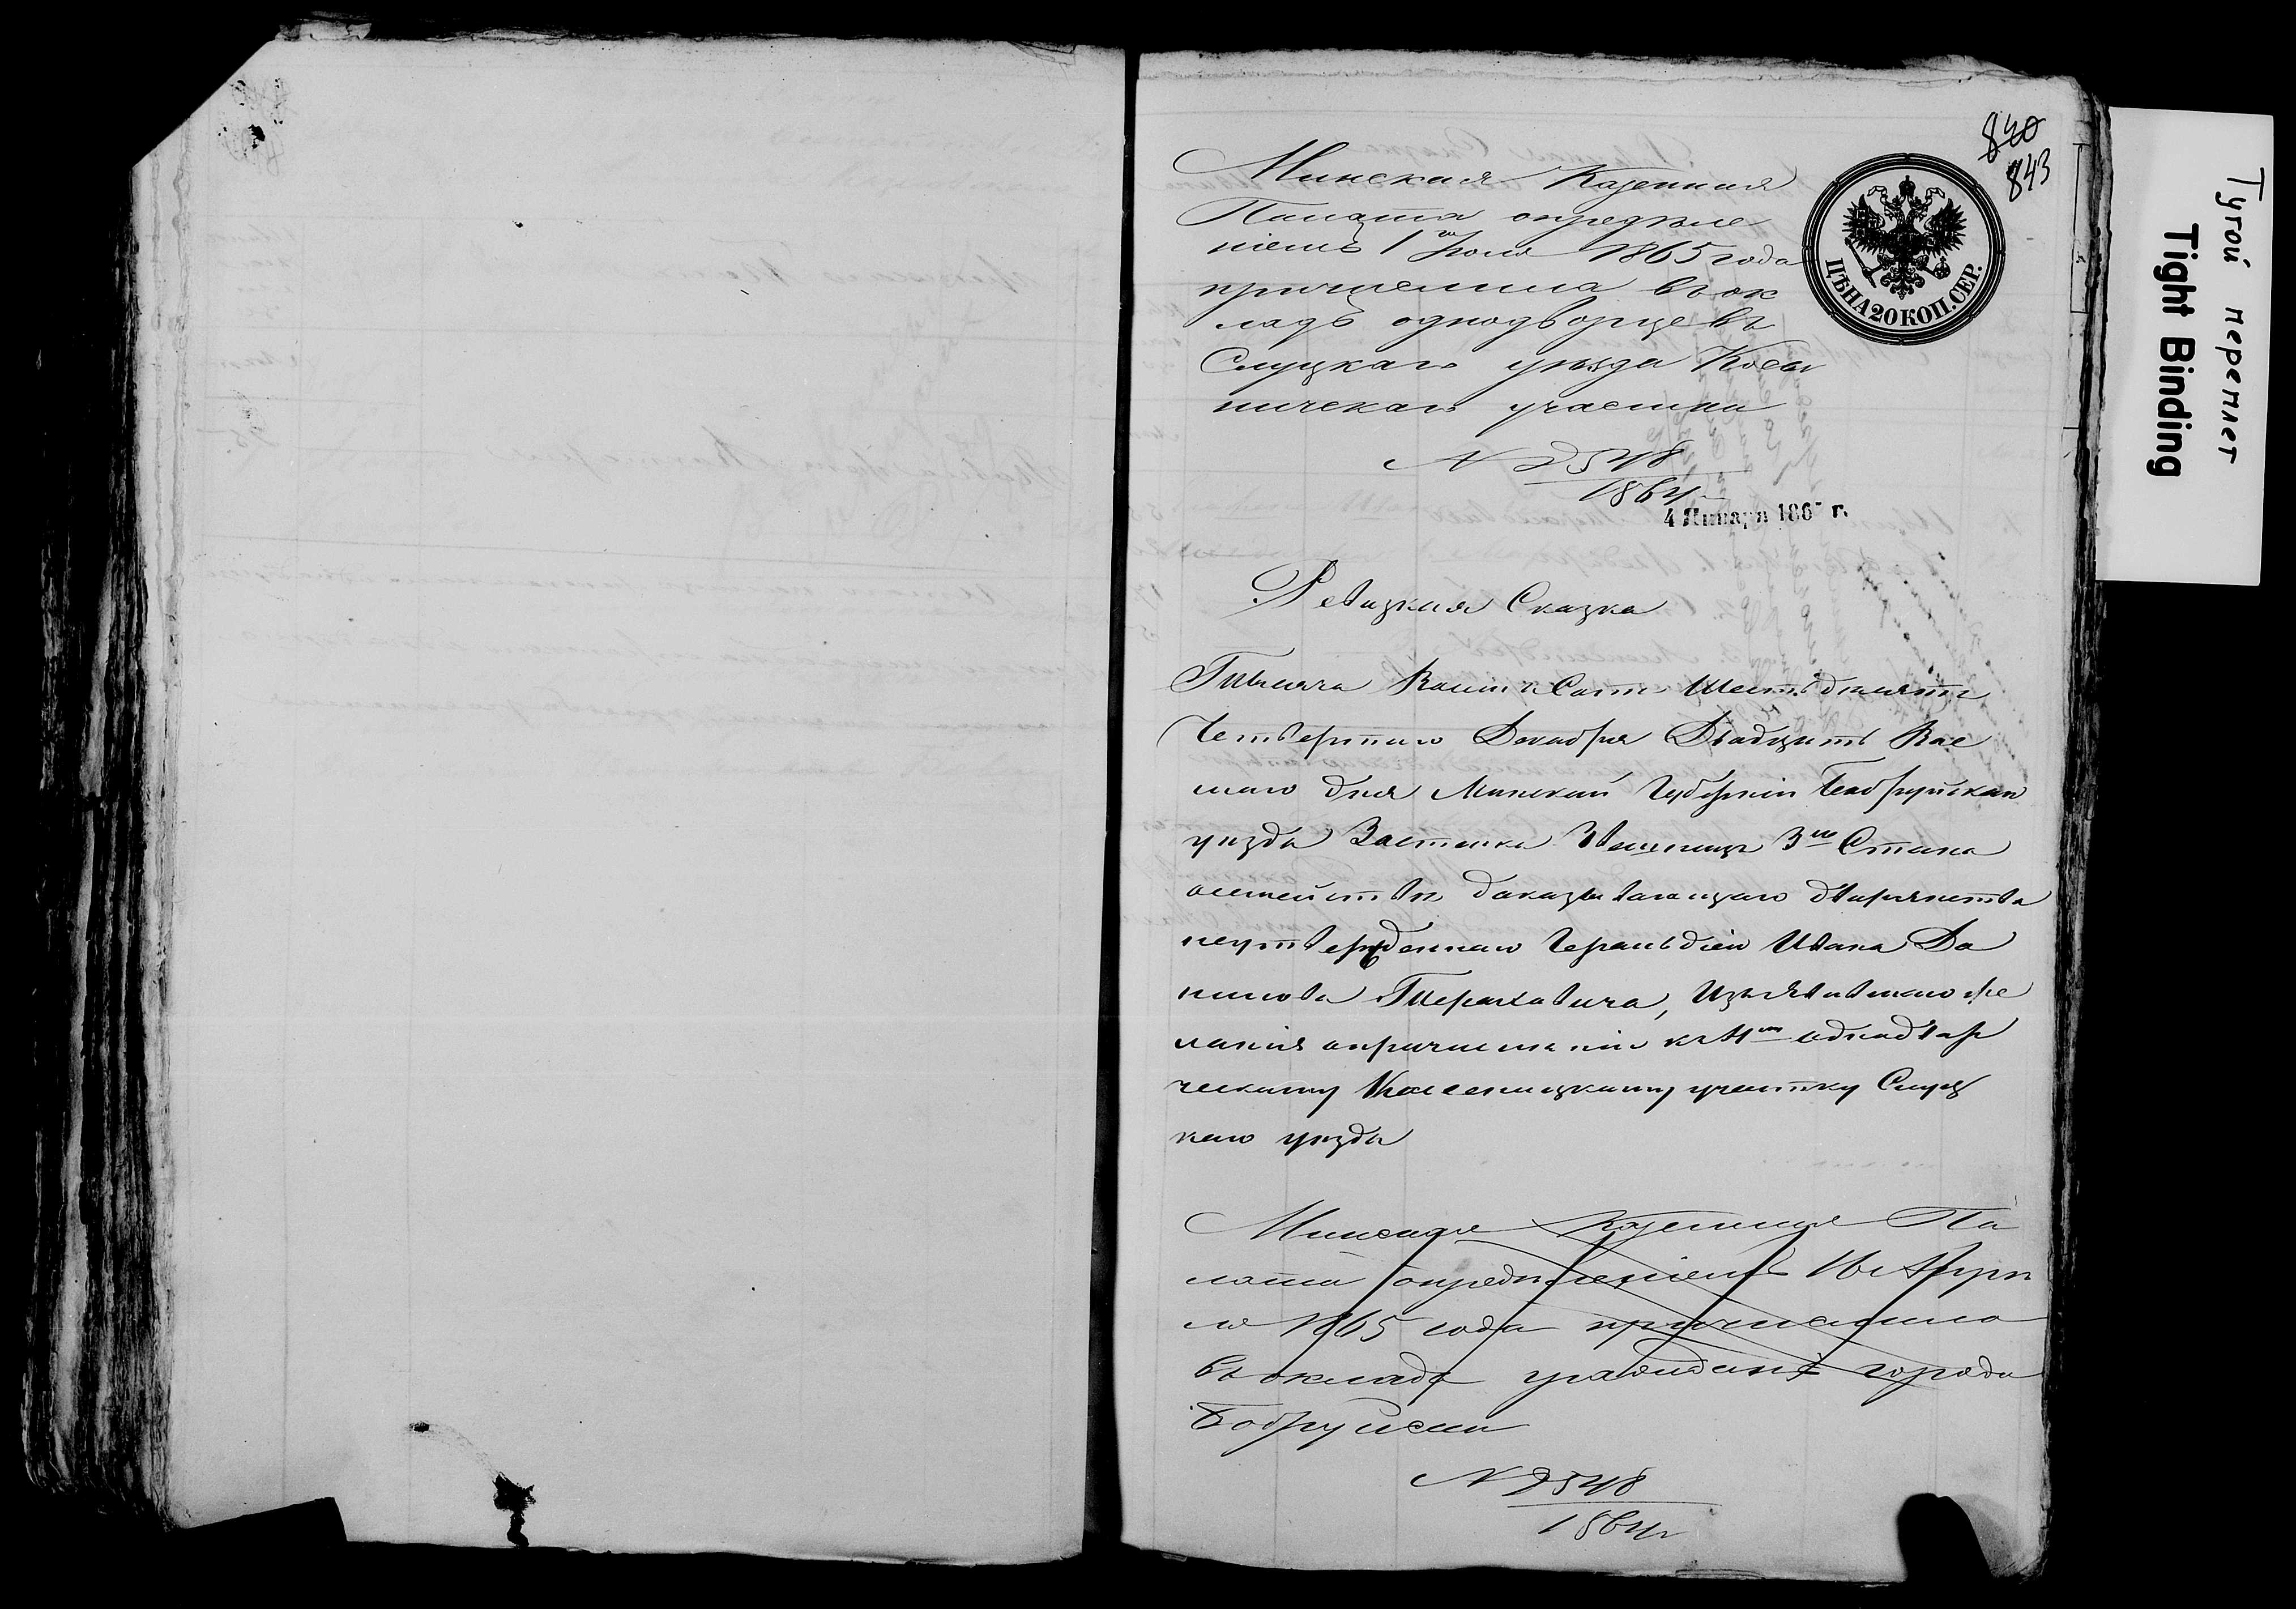 820
843
Минская Казенная
Палата опредѣле
ніемъ 1го Іюля 1865 года
причислила въ ок
ладъ однодворцевъ
Слуцкаго уѣзда
участка
N 2548
1864
4 Января 186 г.
ЦѢНА 20 КОП. СЕР.
Ревизкая Сказка
Тысяча Восимъ Сотъ Шестьдесятъ
Четвертаго Декабря Двадцать Вос
маго дня Минской Губерніи Бобруйскаго
уѣзда Застенка 3го Стана
осемействѣ доказывающаго дварянства
неутвержденнаго Герольдіею Ивана Да
нилова Тераховича, Изъявившаго же
ланія опричислѣніи къ однодвор
ческому участку Слуц
каго уѣзда
Минская Казенная Па
лата опредѣленіемъ 16 Апрѣ
ля 1865 года причислила
въ окладъ гражданъ города
Бобруйска
N 2548
1864
Тугой переплет
Tight Binding